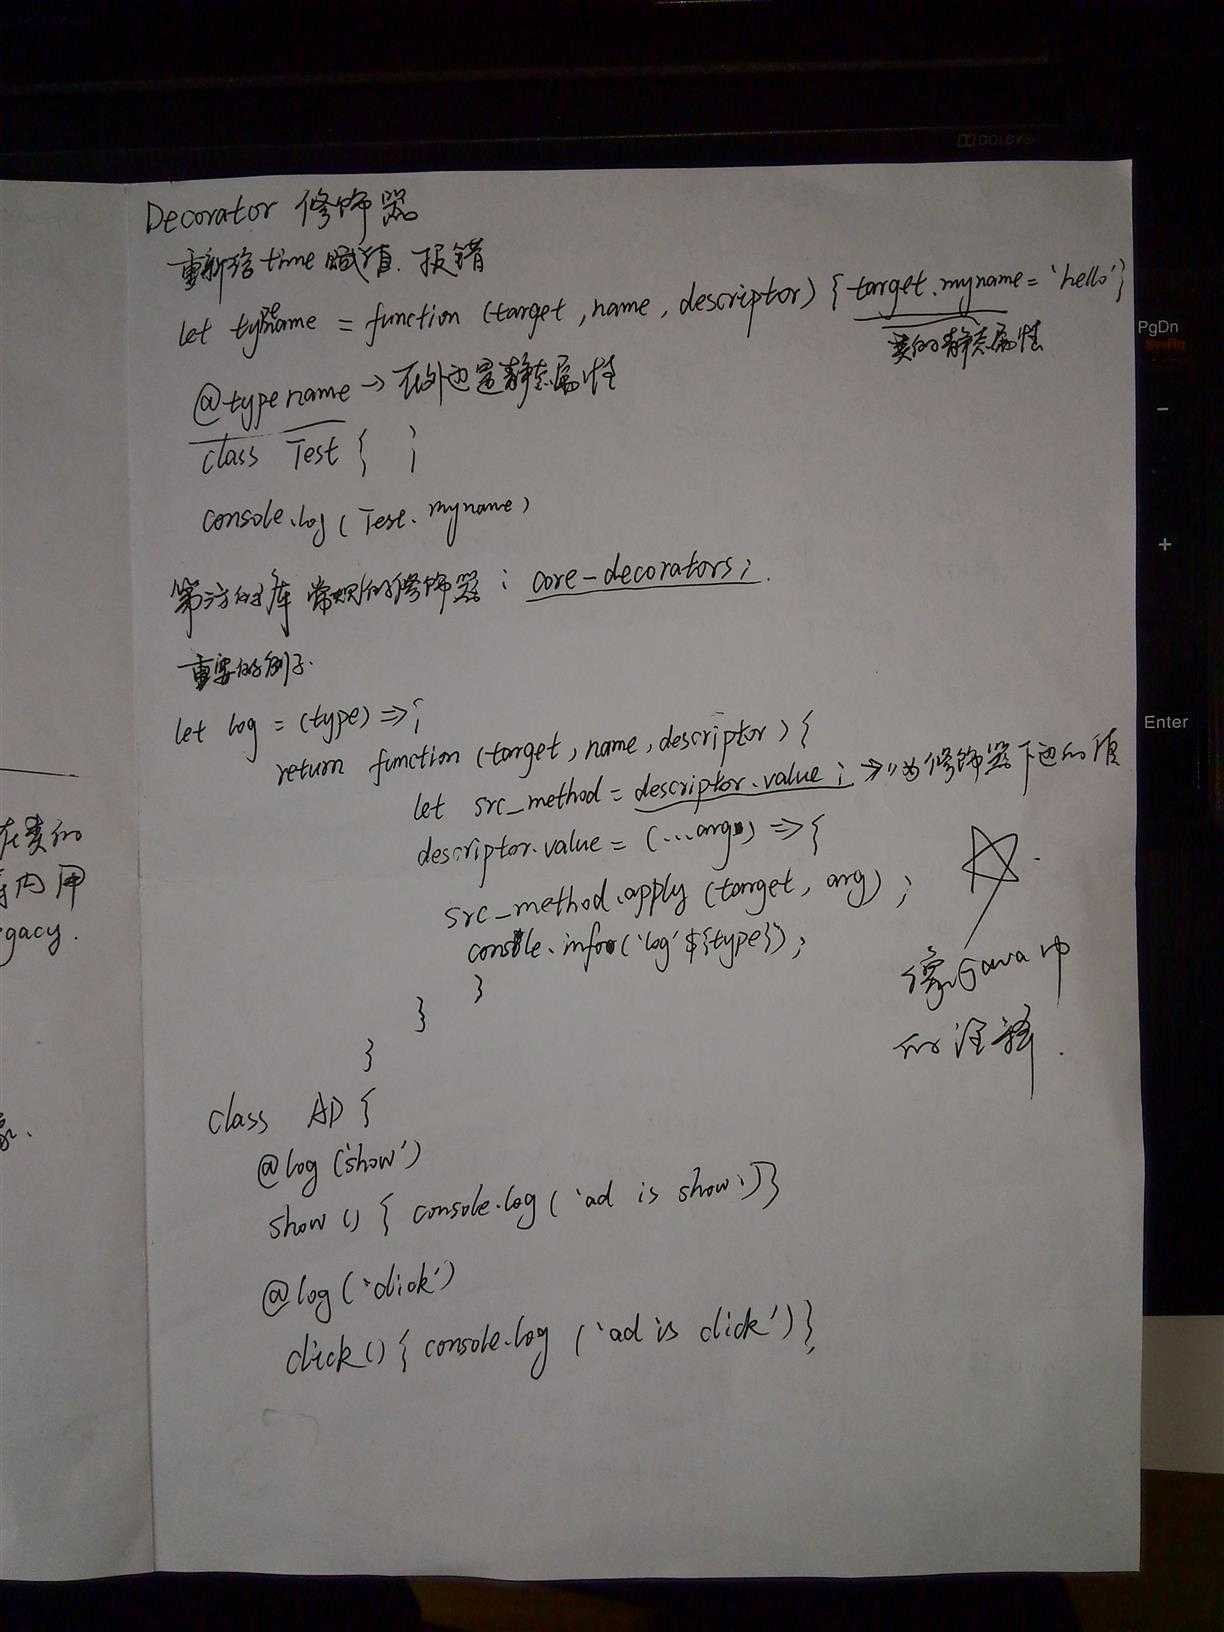 DOLBY
Decorator 修饰器
重新给time赋值.报错
let typename = function (target, name, descriptor) { target.myname = 'hello' }
类的静态属性
@typename → 在外边是静态属性
class Test { }
console.log( Test.myname)
第三方的库 常规的修饰器: core-decorators;
重要的例子.
let log = (type) => {
return function (target, name, descriptor) {
let src_method = descriptor.value; → 为修饰器下边的值
descriptor.value = (...arg) => {
src_method.apply (target, arg) ;
console.info('log' ${type}');
}
}
}
像Java中
的注释.
class AD {
@log ('show')
show () { console.log ( 'ad is show')}
@log ('click')
click() { console.log ('ad is click')}
在类的
内用
gacy.
PgDn
SysRq
-
+
Enter